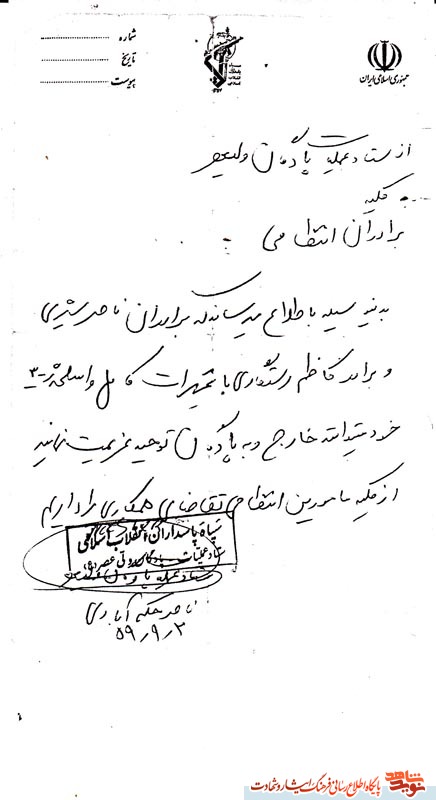 جمهوری اسلامی ایران
شماره
تاریخ
پیوست
از ستاد عملیات پادگان ولیعصر
به کلیه
برادران انتظامی
بدینوسیله باطلاع میرساند که برادران ناصر شیری
و برادر کاظم رستگاری با تجهیزات کامل و اسلحه ژ-۳
خود میتوانند خارج و به پادگان توحید عزیمت نمایند
از کلیه مامورین انتظامی تقاضای همکاری را داریم
سپاه پاسداران انقلاب اسلامی
ستاد عملیات پادگان ولی عصر (عج)
ستاد عملیات پادگان
ناصر حکم آبادی
۵۹٫۹٫۲
نوید شاهد
پایگاه اطلاع رسانی فرهنگ ایثار و شهادت